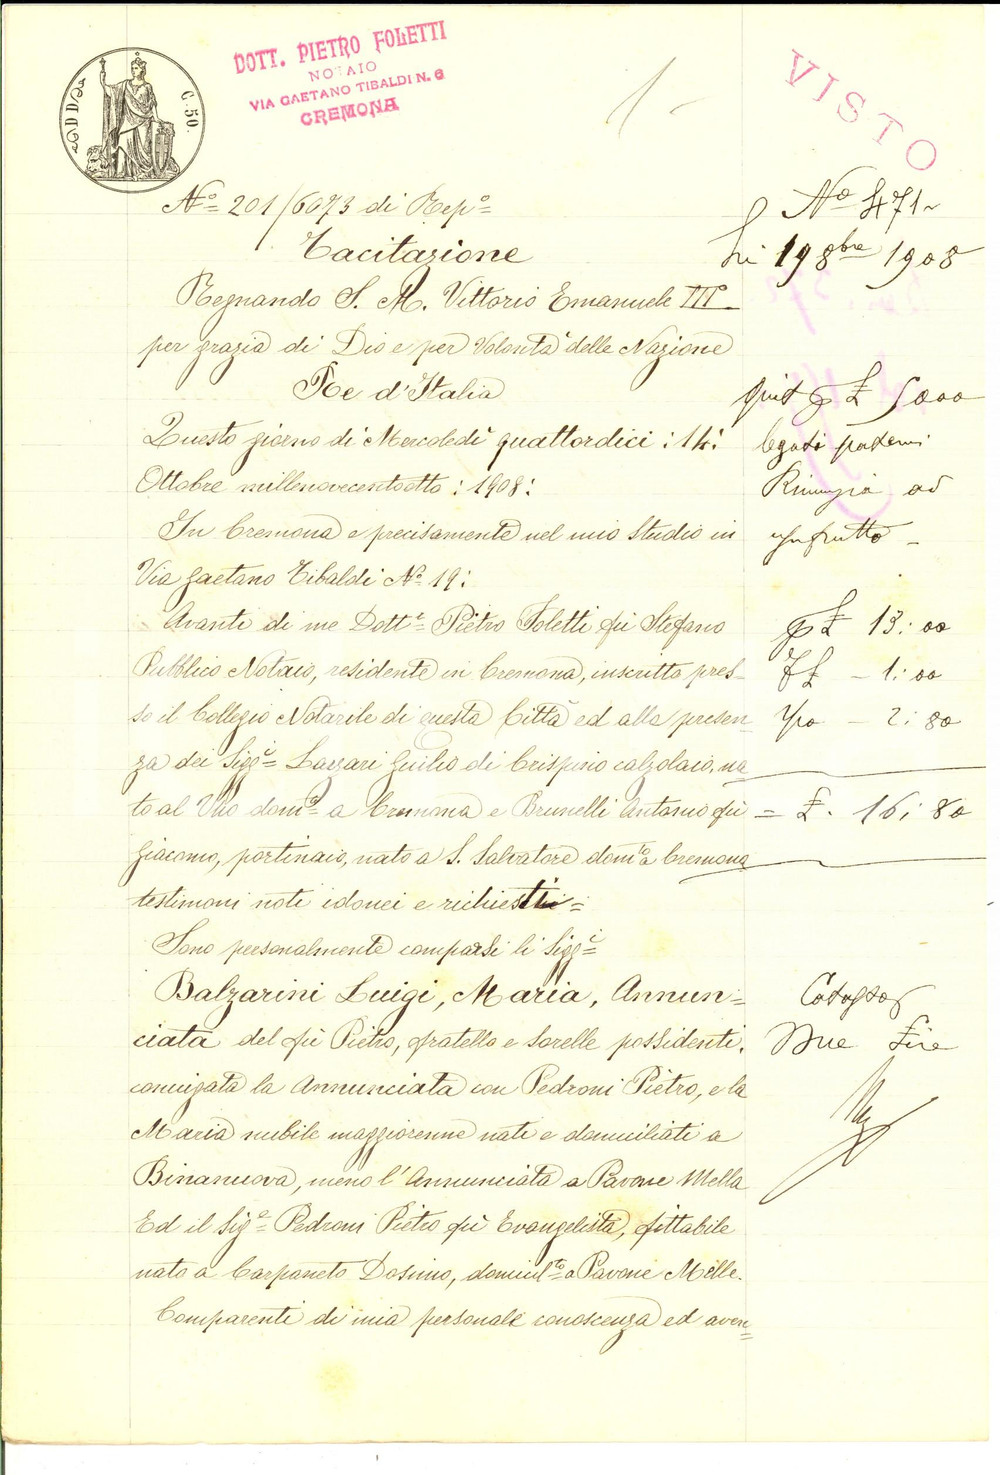 DOTT. PIETRO FOLETTI
NOTAIO
VIA GAETANO TIBALDI N. 6
CREMONA
VISTO
C. 50.
1 -
N.° 201/6073 di Rep.°
Tacitazione
Regnando S. M. Vittorio Emanuele III°
per grazia di Dio e per Volontà delle Nazione
Re d'Italia
Questo giorno di Mercoledì quattordici :14:
Ottobre millenovecentootto :1908:
In Cremona e precisamente nel mio Studio in
Via Gaetano Tibaldi N.° 19:
Avanti di me Dott.r Pietro Foletti fu Stefano
Pubblico Notaio, residente in Cremona, inscritto pres-
so il Collegio Notarile di questa Città ed alla presen-
za dei Sigg.i Lazzari Giulio di Crispino calzolaio, na
to al Vho dom.o a Cremona e Brunelli Antonio fu
Giacomo, portinaio, nato a S. Salvatore dom.to a Cremona
testimoni noti idonei e richiesti =
Sono personalmente comparsi li Sigg.i
Balzarini Luigi, Maria, Annun=
ciata del fu Pietro, fratello e sorelle possidenti,
coniugata la Annunciata con Pedroni Pietro, e la
Maria nubile maggiorenne nati e domiciliati a
Binanuova, meno l'Annunciata a Pavone Mella
Ed il Sig.r Pedroni Pietro fu Evangelista, fittabile
nato a Carpaneto Dosimo, domicil.to a Pavone Mella.
Comparenti di mia personale conoscenza ed aven=
N° 471
Li 19 8bre 1908
quit p £ 5000
legati paterni
Rinunzia ad
usufrutto -
p £ 13:00
- 1:00
- 2:80
= £. 16:80
Due Lire